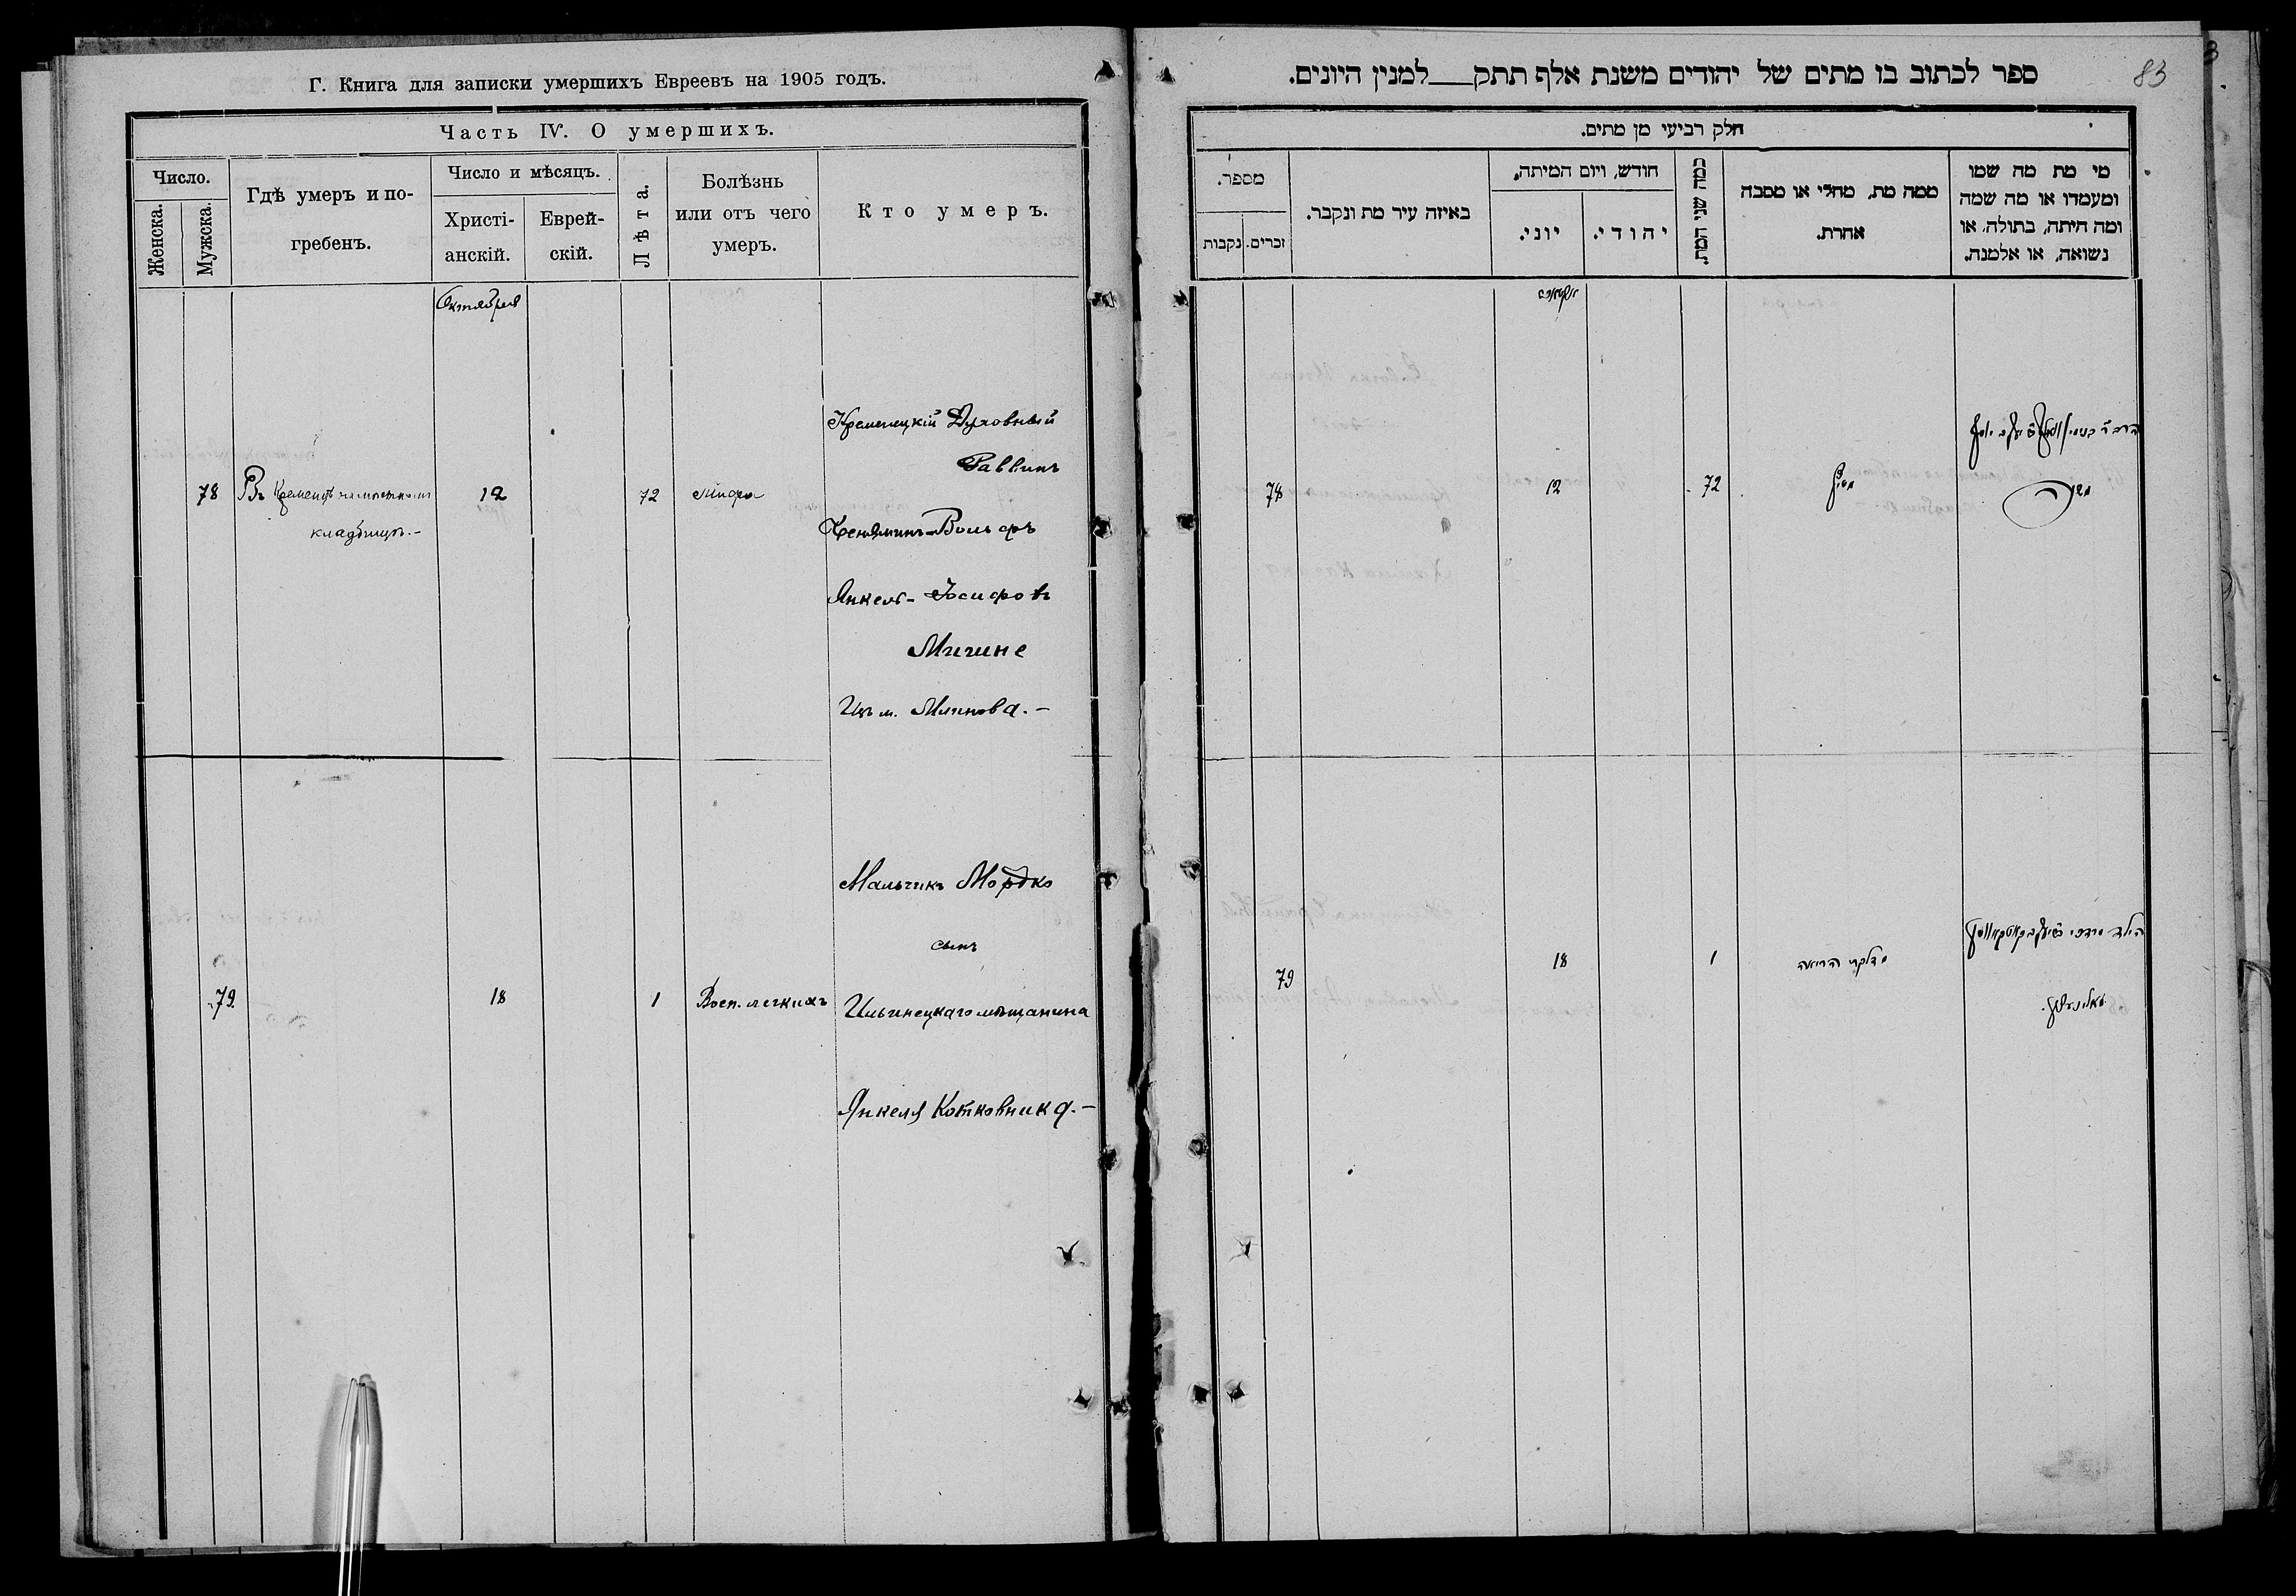 Г. Книга для записки умершихъ Евреевъ на 1905 годъ.
Часть IV. О умершихъ.
Число.
Женска.
Мужска.
Гдѣ умеръ и по-
гребенъ.
Число и мѣсяцъ.
Христі-
анскій.
Еврей-
скій.
Лѣта.
Болѣзнь
или отъ чего
умеръ.
Кто умеръ.
Октября
Кременецкій Духовный
Раввинъ
78
Въ Кременцѣ на
кладбищѣ.-
12
72
Вольфъ
Янкель-Іосифовъ
Изъ м. Млинова.-
Мальчикъ Мордко
сынъ
79
18
1
Восп. легкихъ
мѣщанина
Янкеля Котковника.-
83
ספר לכתוב בו מתים של יהודים משנת אלף תתק למנין היונים.
חלק רביעי מן מתים.
מספר.
נקבות
זכרים.
באיזה עיר מת ונקבר.
חודש, ויום המיתה,
יוני.
יהודי.
כמה שני המת.
ממה מת, מחלי או מסבה
אחרת.
מי מת מה שמו
ומעמדו או מה שמה
ומה היתה, בתולה, או
נשואה, או אלמנה.
78
12
72
79
18
1
הריאה
הילד מרדכי